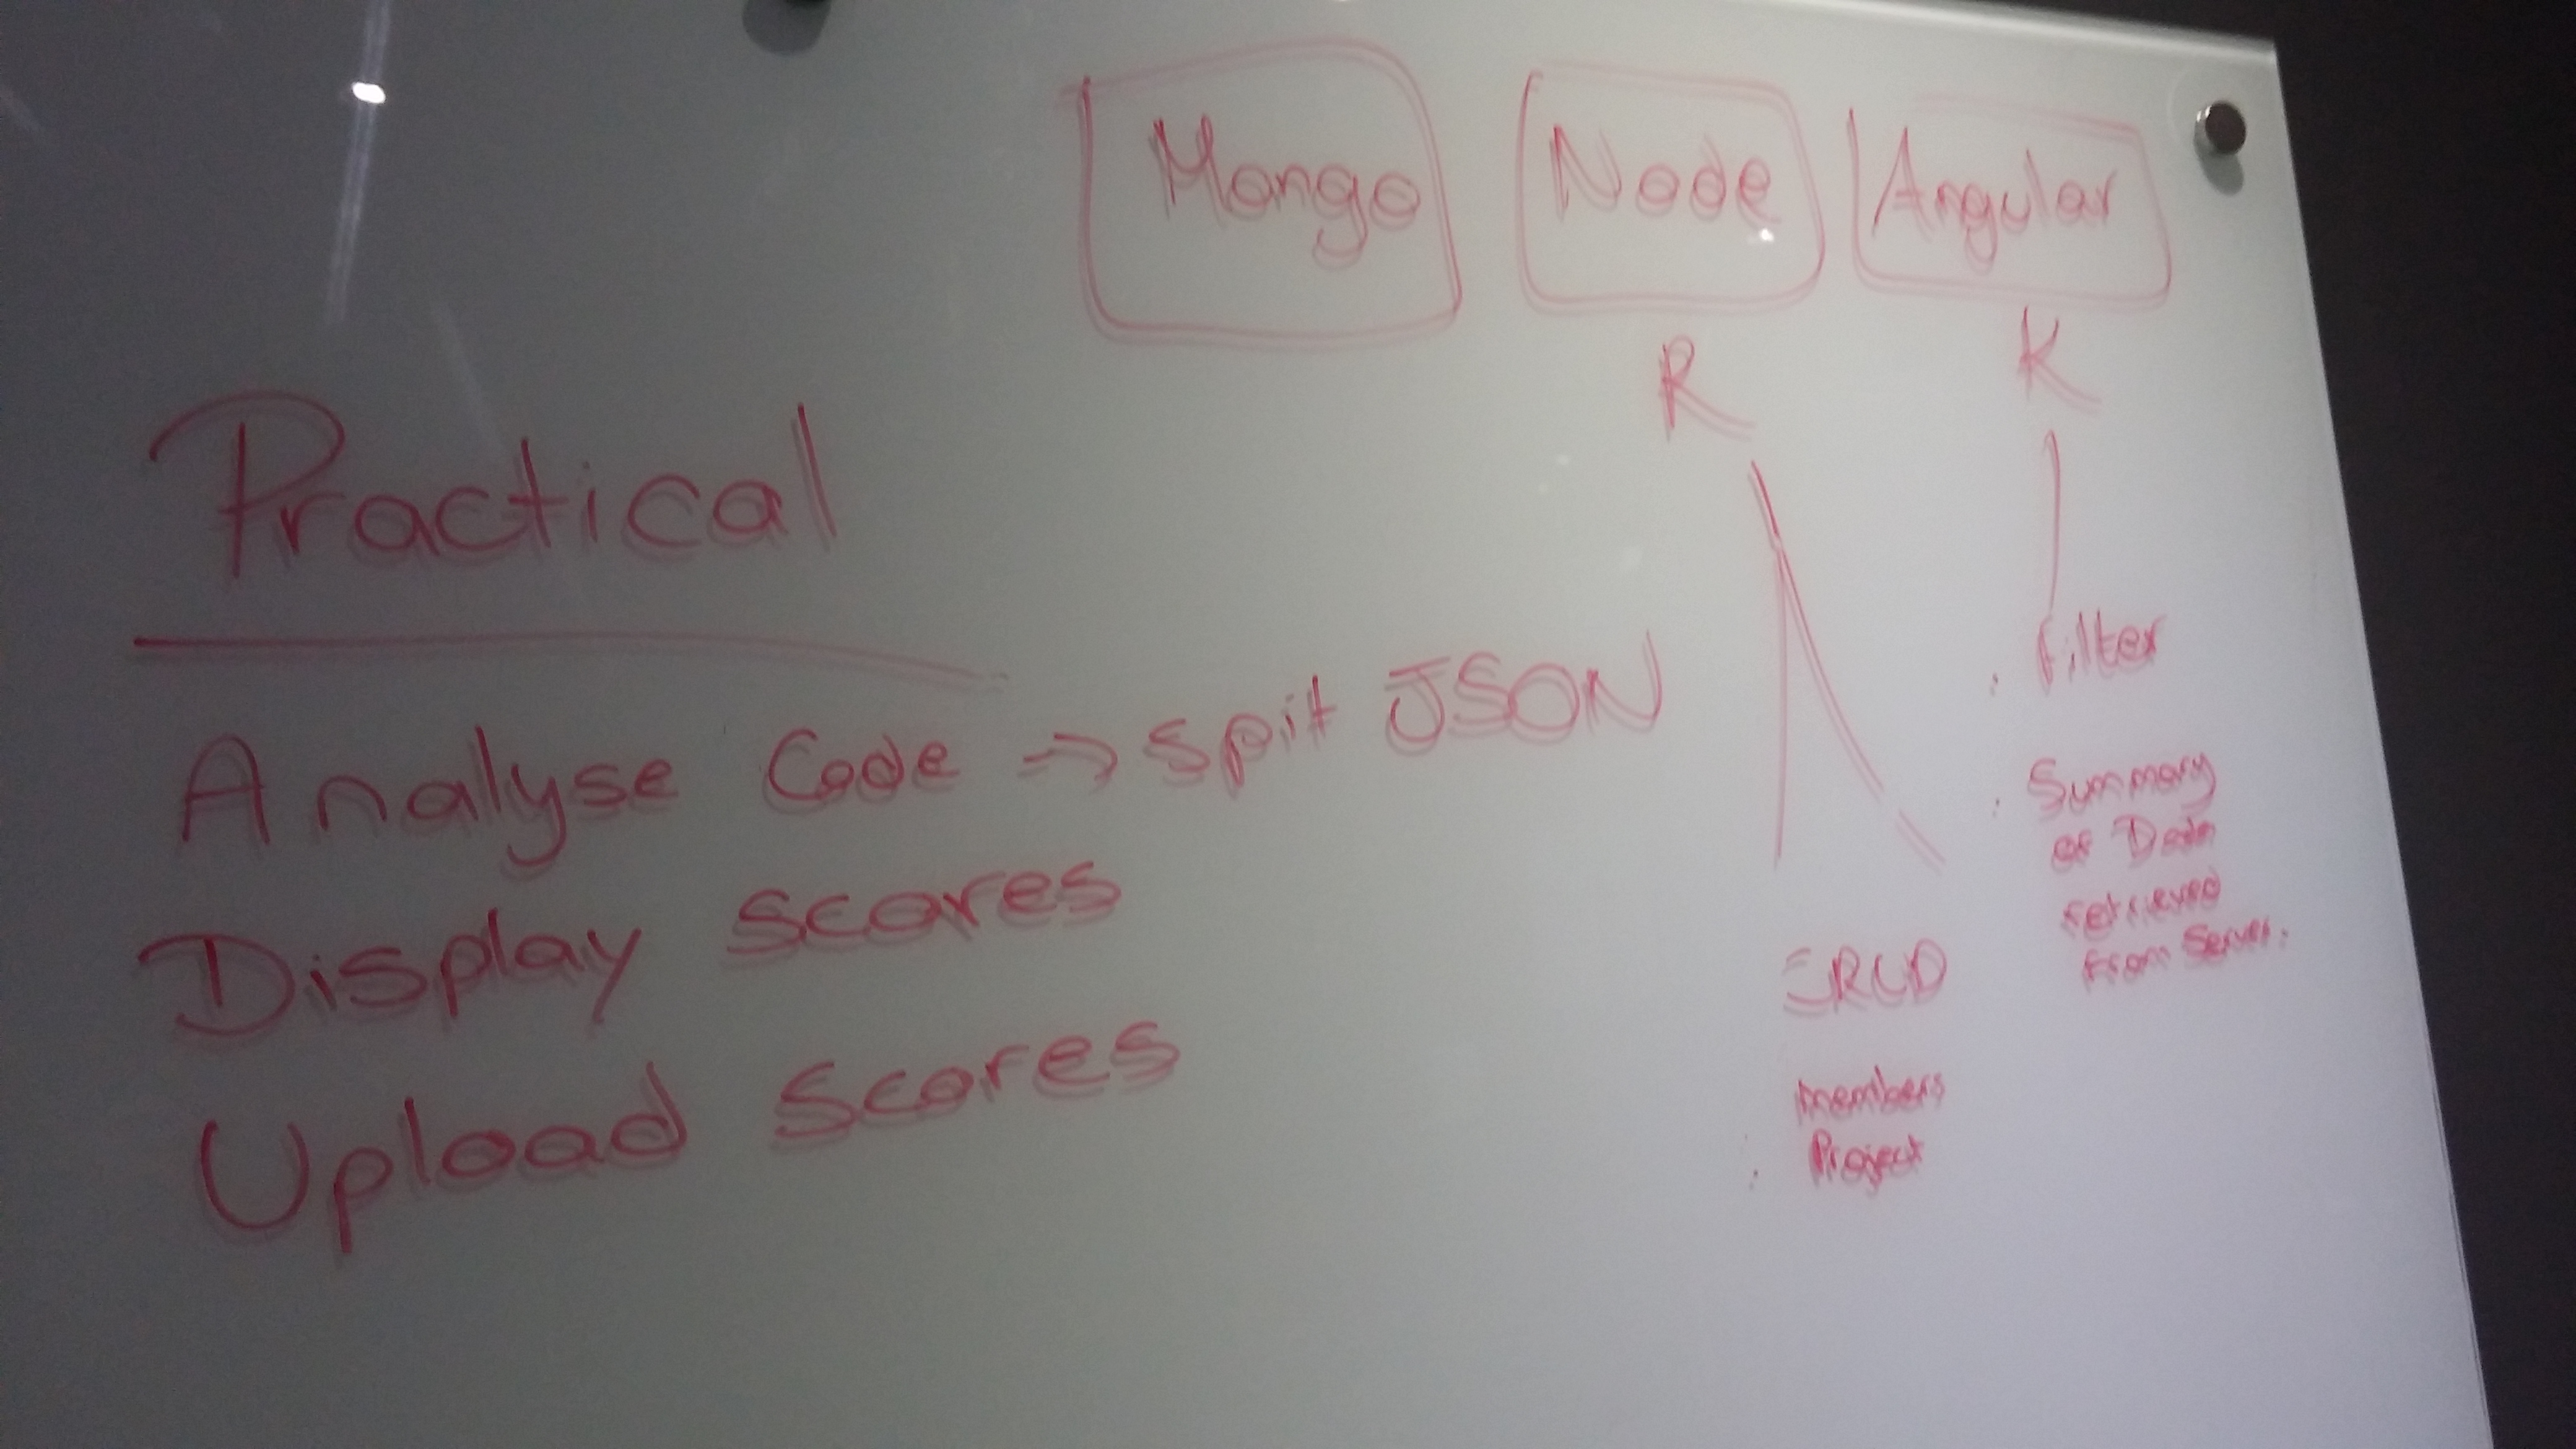 Mongo Node Angular
R K
Practical
Analyse Code → spit JSON
Display scores
Upload scores
CRUD
members
Project
Filter
Summary
of Data
retrieved
from Server.